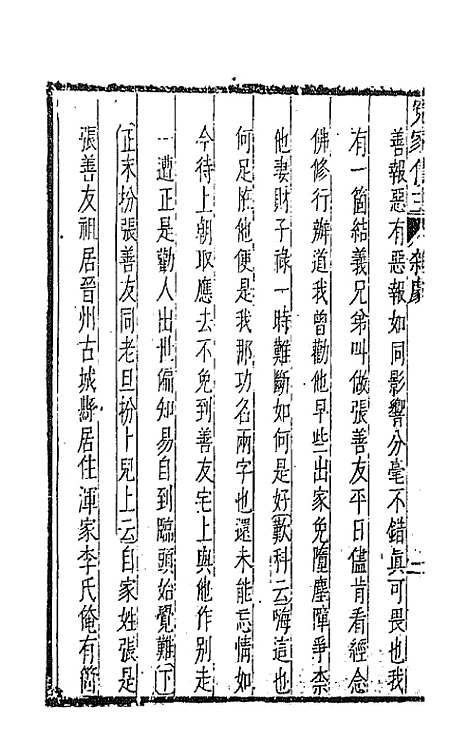 冤家債主 雜劇 一
善報惡有惡報如同影響分毫不錯眞可畏也我
有一箇結義兄弟叫做張善友平日儘肯看經念
佛修行辦道我曾勸他早些出家免墮塵障爭柰
他妻財子祿一時難斷如何是好(歎科云)嗨這也
何足怪他便是我那功名兩字也還未能忘情如
今待上朝取應去不免到善友宅上與他作別走
一遭正是勸人出世偏知易自到臨頭始覺難(下)
(正末扮張善友同老旦扮卜兒上云)自家姓張是
張善友祖居晉州古城縣居住渾家李氏俺有箇